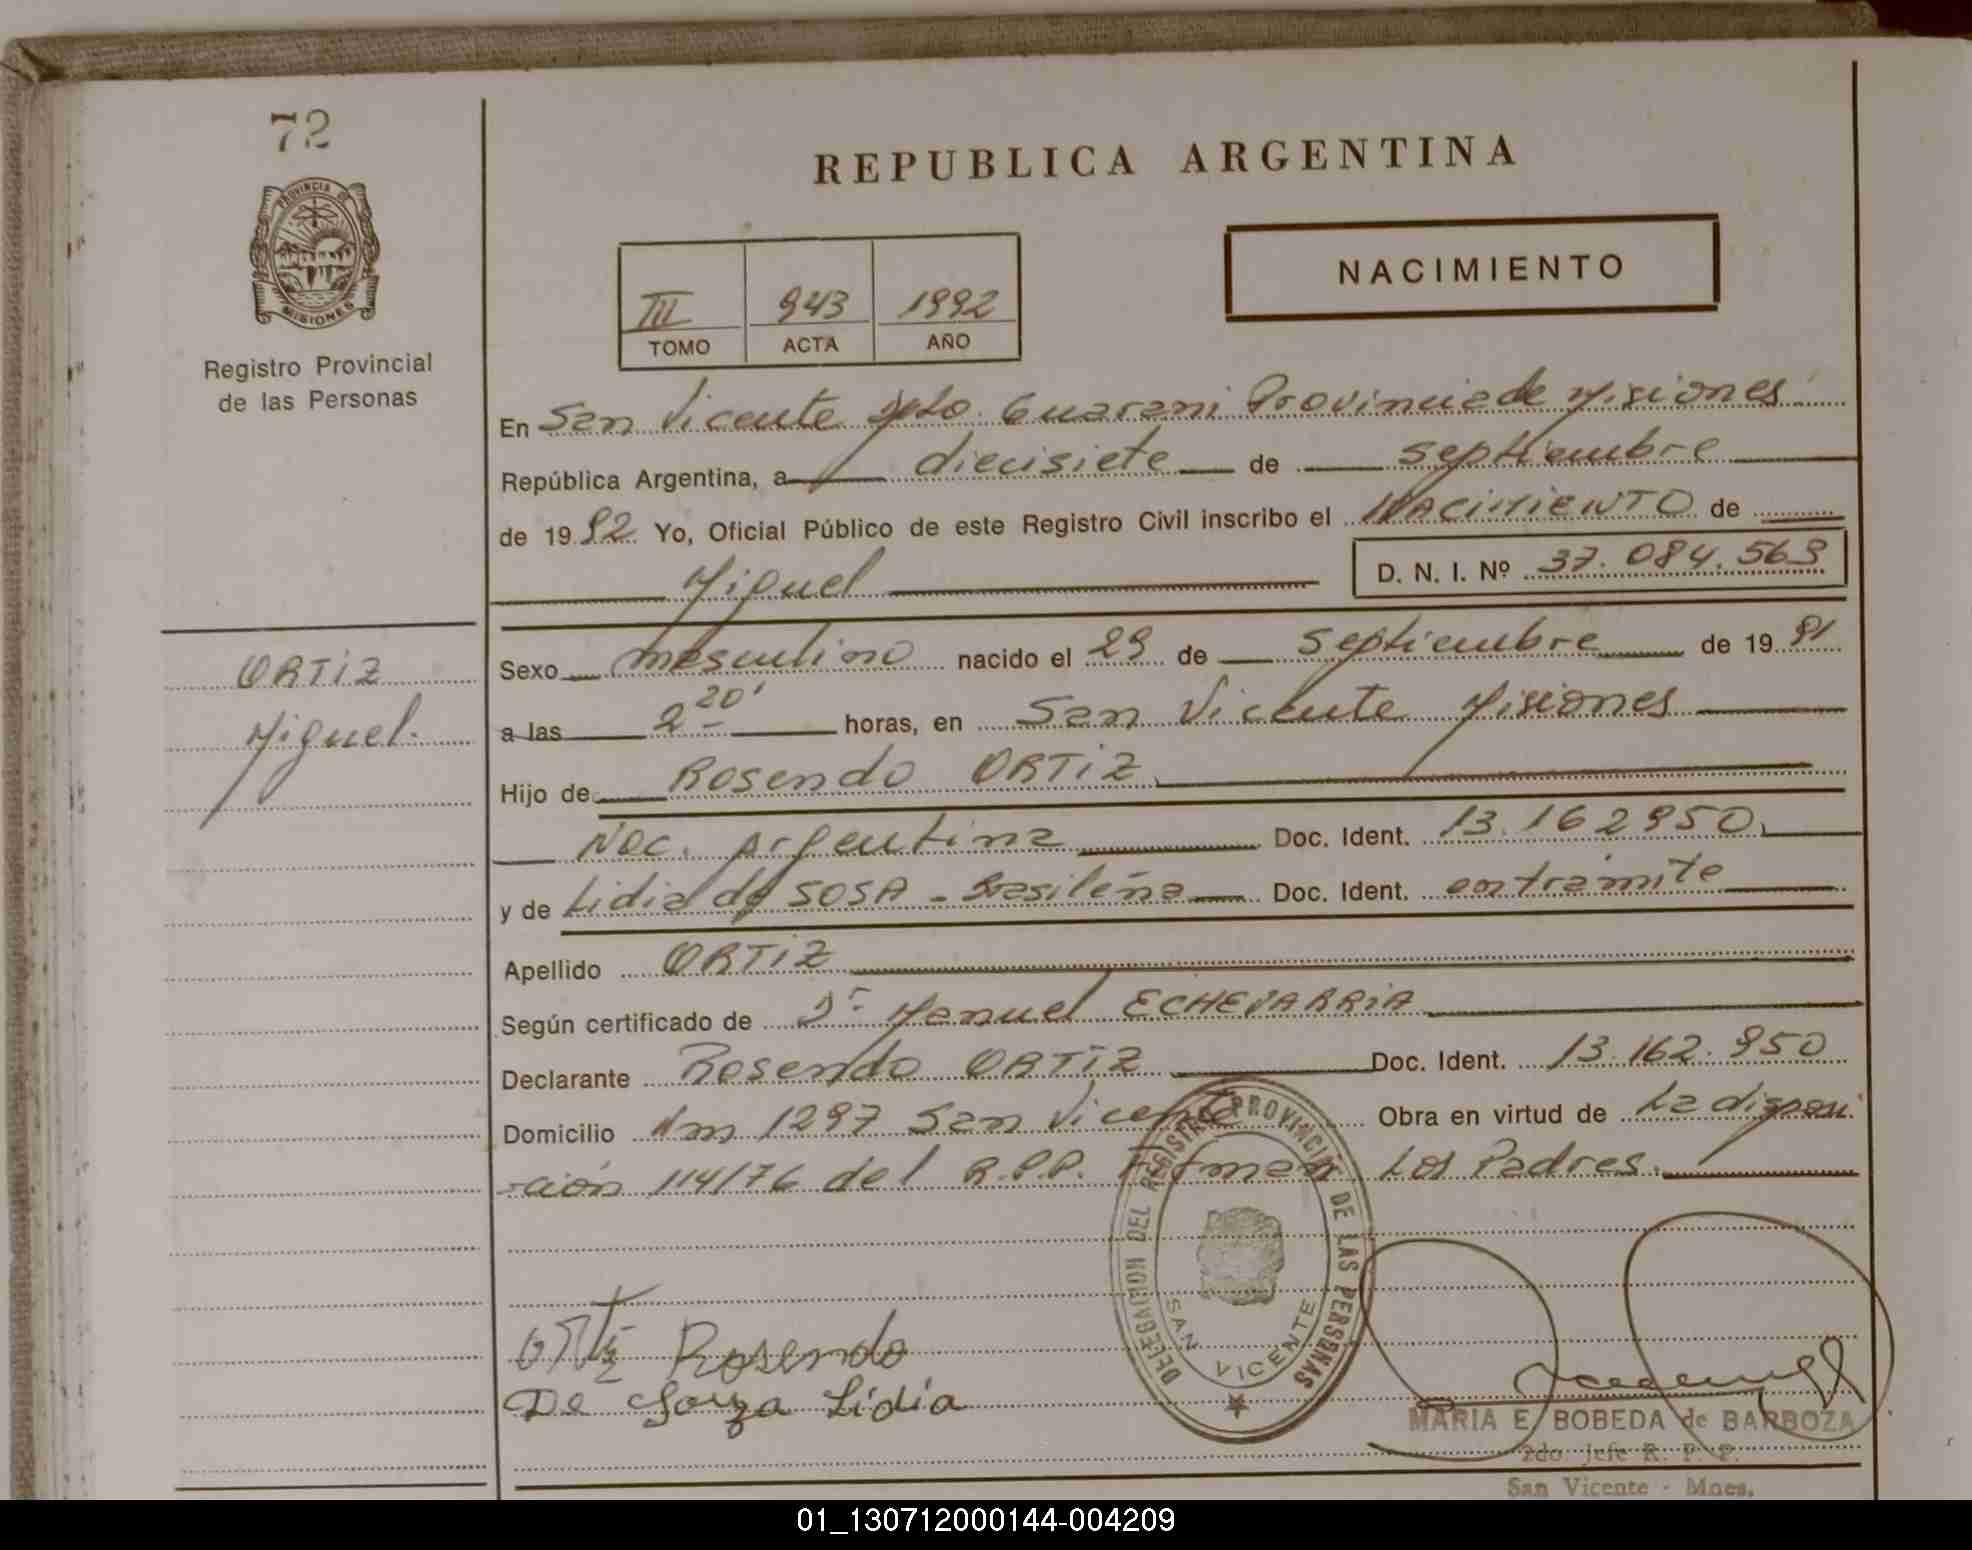 72
REPUBLICA ARGENTINA
PROVINCIA DE MISIONES
Registro Provincial
de las Personas
NACIMIENTO
III 943 1992
TOMO ACTA AÑO
En San Vicente Dpto. Guarani Provincia de Misiones
República Argentina, a diecisiete de septiembre
de 1992 Yo, Oficial Público de este Registro Civil inscribo el NACIMIENTO de
Miguel D. N. I. Nº 37.084.569
ORTIZ
Miguel.
Sexo masculino nacido el 29 de septiembre de 1991
a las 2 20' horas, en San Vicente Misiones
Hijo de Rosendo ORTIZ
Nac. Argentina Doc. Ident. 13.162950
y de Lidia de SOSA - Brasileña Doc. Ident. en trámite
Apellido ORTIZ
Según certificado de Dr. Manuel ECHEVARRIA
Declarante Rosendo ORTIZ Doc. Ident. 13.162.950
Domicilio Km 1297 San Vicente Obra en virtud de La disposi
-ción 114/76 del R.P.P. Firman Los Padres.
Ortiz Rosendo
De Souza Lidia
DELEGACION DEL REGISTRO PROVINCIAL DE LAS PERSONAS
SAN VICENTE
MARIA E. BOBEDA de BARBOZA
2do. Jefe R. P. P.
San Vicente - Mnes.
01_130712000144-004209